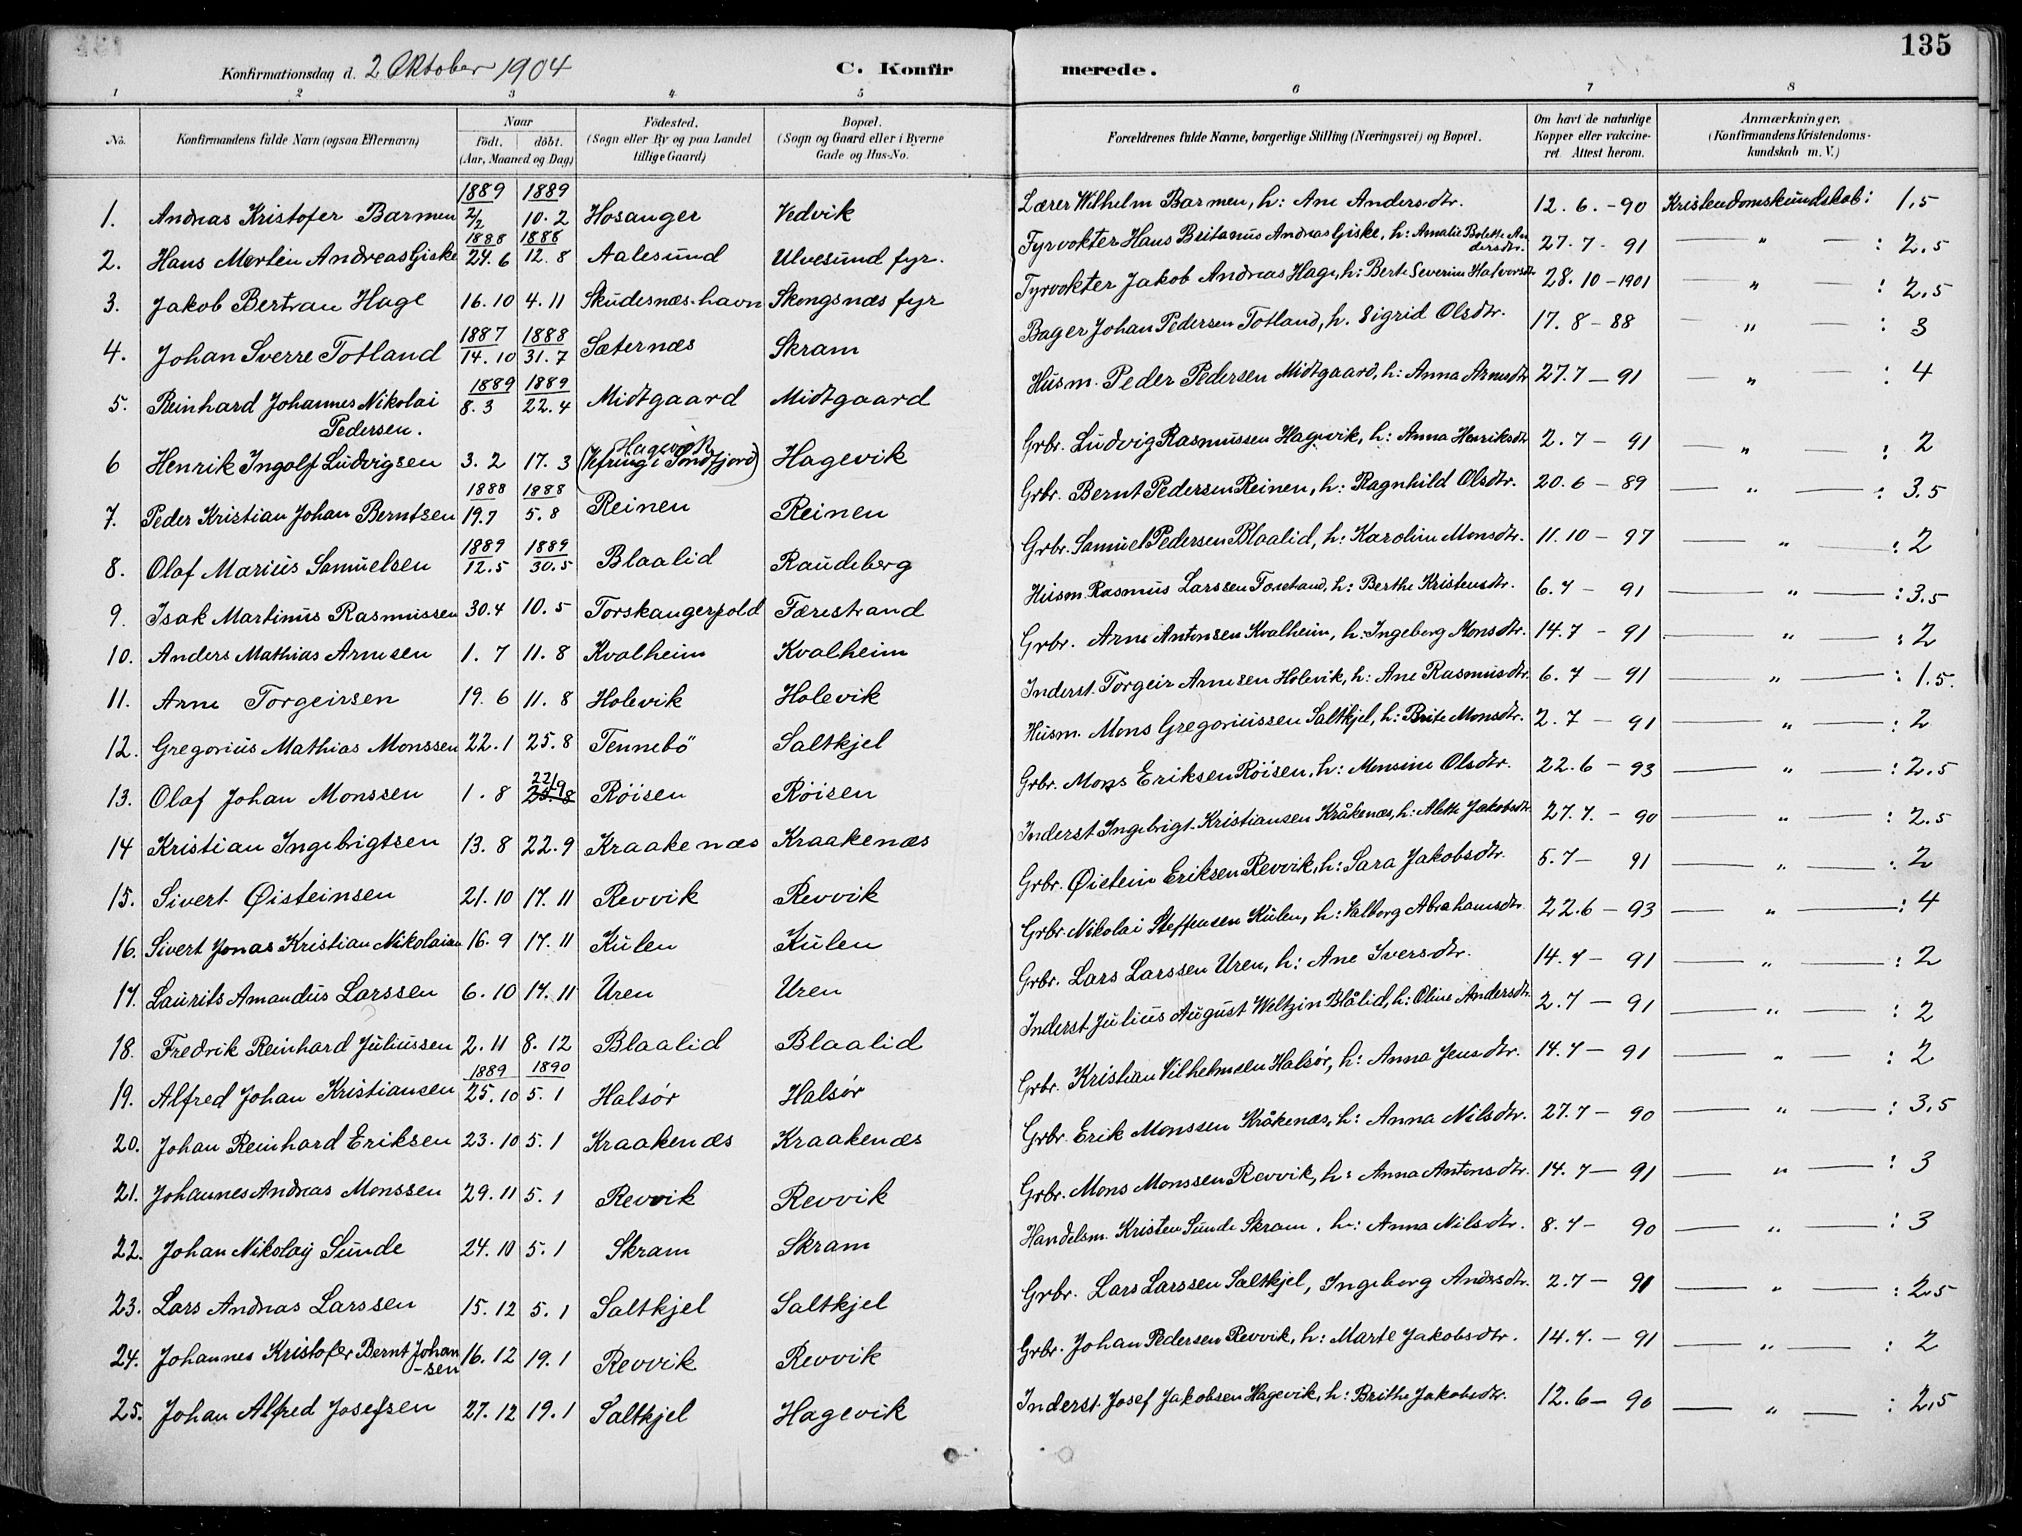 135
Konfirmationsdag d. 2 Oktober 1904 C. Konfirmerede.
1 2 3 4 5 6 7 8
No. Konfirmandens fulde Navn (ogsaa Efternavn) Naar født. døbt. (Aar, Maaned og Dag) Fødested. (Sogn eller By og paa Landet tillige Gaard) Bopæl. (Sogn og Gaard eller i Byerne Gade og Hus-No. Forældrenes fulde Navne, borgerlige Stilling (Næringsvei) og Bopæl. Om havt de naturlige Kopper eller vakcineret. Attest herom. Anmærkninger. (Konfirmandens Kristendomskundskab m. V.)
1889 1889
1. Andreas Kristofer Barmen 2/2 10. 2 Hosanger Vedvik Lærer Wilhelm Barmen, h: Ane Andersdtr. 12. 6. - 90 Kristendomskundskab: 1,5
1888 1888
2. Hans Mortin Andreas Giske 24. 6 12. 8 Aalesund Ulvesund fyr. Fyrvokter Hans Britanus Andreas Giske, h: Amalie Bolette Andersdtr. 27. 7 - 91 — " — : 2,5
3. Jakob Bertran Hage 16. 10 4. 11 Skudesnæshavn Skongsnæs fyr Fyrvokter Jakob Andreas Hage, h: Berte Severine Halvorsdtr 28. 10 - 1901 — " — : 2,5
1887 1888
4. Johan Sverre Totland 14. 10 31. 7 Sæternæs Skram Bager Johan Pedersen Totland, h. Sigrid Olsdtr. 17. 8 - 88 — " — : 3
1889 1889
5. Reinhard Johannes Nikolai Pedersen. 8. 3 22. 4 Midtgaard Midtgaard Husm. Peder Pedersen Midtgaard, h: Anna Arnesdtr 27. 7 - 91 — " — : 4
6 Henrik Ingolf Ludvigsen 3. 2 17. 3 Hagevik (Vefring i Søndfjord) Hagevik Grbr. Ludvig Rasmussen Hagevik, h: Anna Henriksdtr 2. 7 - 91 — " — : 2
1888 1888
7. Peder Kristian Johan Berntsen 19. 7 5. 8 Reinen Reinen Grbr. Bernt Pedersen Reinen, h: Ragnhild Olsdtr. 20. 6 - 89 — " — : 3.5
1889 1889
8. Olaf Marius Samuelsen 12. 5 30. 5 Blaalid Raudeberg Grbr. Samuel Pedersen Blaalid, h: Karoline Monsdtr. 11. 10 - 97 — " — : 2
9. Isak Martinus Rasmussen 30. 4 10. 5 Torskangerpold Færestrand Husm. Rasmus Larssen, h: Berthe Kristensdtr. 6. 7 - 91 — " — : 3.5
10. Anders Mathias Arnesen 1. 7 11. 8 Kvalheim Kvalheim Grbr. Arne Antonsen Kvalheim, h: Ingeborg Monsdtr. 14. 7 - 91 — " — : 2
11. Arne Torgeirsen 19. 6 11. 8 Holevik Holevik Inderst. Torgeir Arnesen Holevik, h: Ane Rasmusdtr 6. 7 - 91 — " — : 1.5.
12. Gregorius Mathias Monssen 22. 1 25. 8 Tennebö Saltkjel Husm. Mons Gregoriussen Saltkjel, h: Brite Monsdtr. 2. 7 - 91 — " — : 2
13. Olaf Johan Monssen 1. 8 22/9 25. 8 Røisen Røisen Grbr. Mons Eriksen Røisen, h: Monsine Olsdtr. 22. 6 - 93 — " — : 2,5
14 Kristian Ingebrigtsen 13. 8 22. 9 Kraakenæs Kraakenæs Inderst Ingebrigt Kristiansen Kråkenæs, h: Alette Jakobsdtr 27. 7. - 90 — " — : 2.5
15. Sivert Øisteinsen 21. 10 17. 11 Revvik Revvik Grbr. Øistein Eriksen Revvik, h: Sara Jakobsdtr. 5. 7 - 91 — " — : 2
16. Sivert Jonas Kristian Nikolaisen 16. 9 17. 11 Kulen Kulen Grbr. Nikolai Steffensen Kulen, h: Valborg Abrahamsdtr 22. 6 - 93 — " — : 4
17. Laurits Amandus Larssen 6. 10 17. 11 Uren Uren Grbr. Lars Larssen Uren, h: Ane Iversdtr. 14. 7 - 91 — " — : 2
18. Fredrik Reinhard Juliussen 2. 11 8. 12 Blaalid Blaalid Inderst Julius August Weltzin Blålid, h: Oline Andersdtr 2. 7 - 91 — " — : 2
1889 1890
19. Alfred Johan Kristiansen 25. 10 5. 1 Halsør Halsør Grbr. Kristian Vilhelmsen Halsør, h: Anna Jensdtr. 14. 7 - 91 — " — : 2
20. Johan Reinhard Eriksen 23. 10 5. 1 Kraakenæs Kraakenæs Grbr. Erik Monssen Kråkenæs, h: Anna Nilsdtr. 27. 7 - 90 — " — : 3,5
21. Johannes Andreas Monssen 29. 11 5. 1 Revvik Revvik Grbr. Mons Monssen Revvik, h: Anna Antonsdtr. 14. 7 - 91 — " — : 3
22. Johan Nikolay Sunde 24. 10 5. 1 Skram Skram Handelsm. Kristen Sunde Skram, h: Anna Nilsdtr. 8. 7 - 90 — " — : 3
23. Lars Andreas Larssen 15. 12 5. 1 Saltkjel Saltkjel Grbr. Lars Larssen Saltkjel, Ingeborg Andersdtr. 2. 7 - 91 — " — : 2,5
24. Johannes Kristofer Bernt Johan-sen 16. 12 19. 1 Revvik Revvik Grbr. Johan Pedersen Revvik, h: Marte Jakobsdtr. 14. 7. - 91 — " — : 2
25. Johan Alfred Josefsen 27. 12 19. 1 Saltkjel Hagevik Inderst. Josef Jakobsen Hagevik, h: Brithe Jakobsdtr. 12. 6 - 90 — " — : 2,5